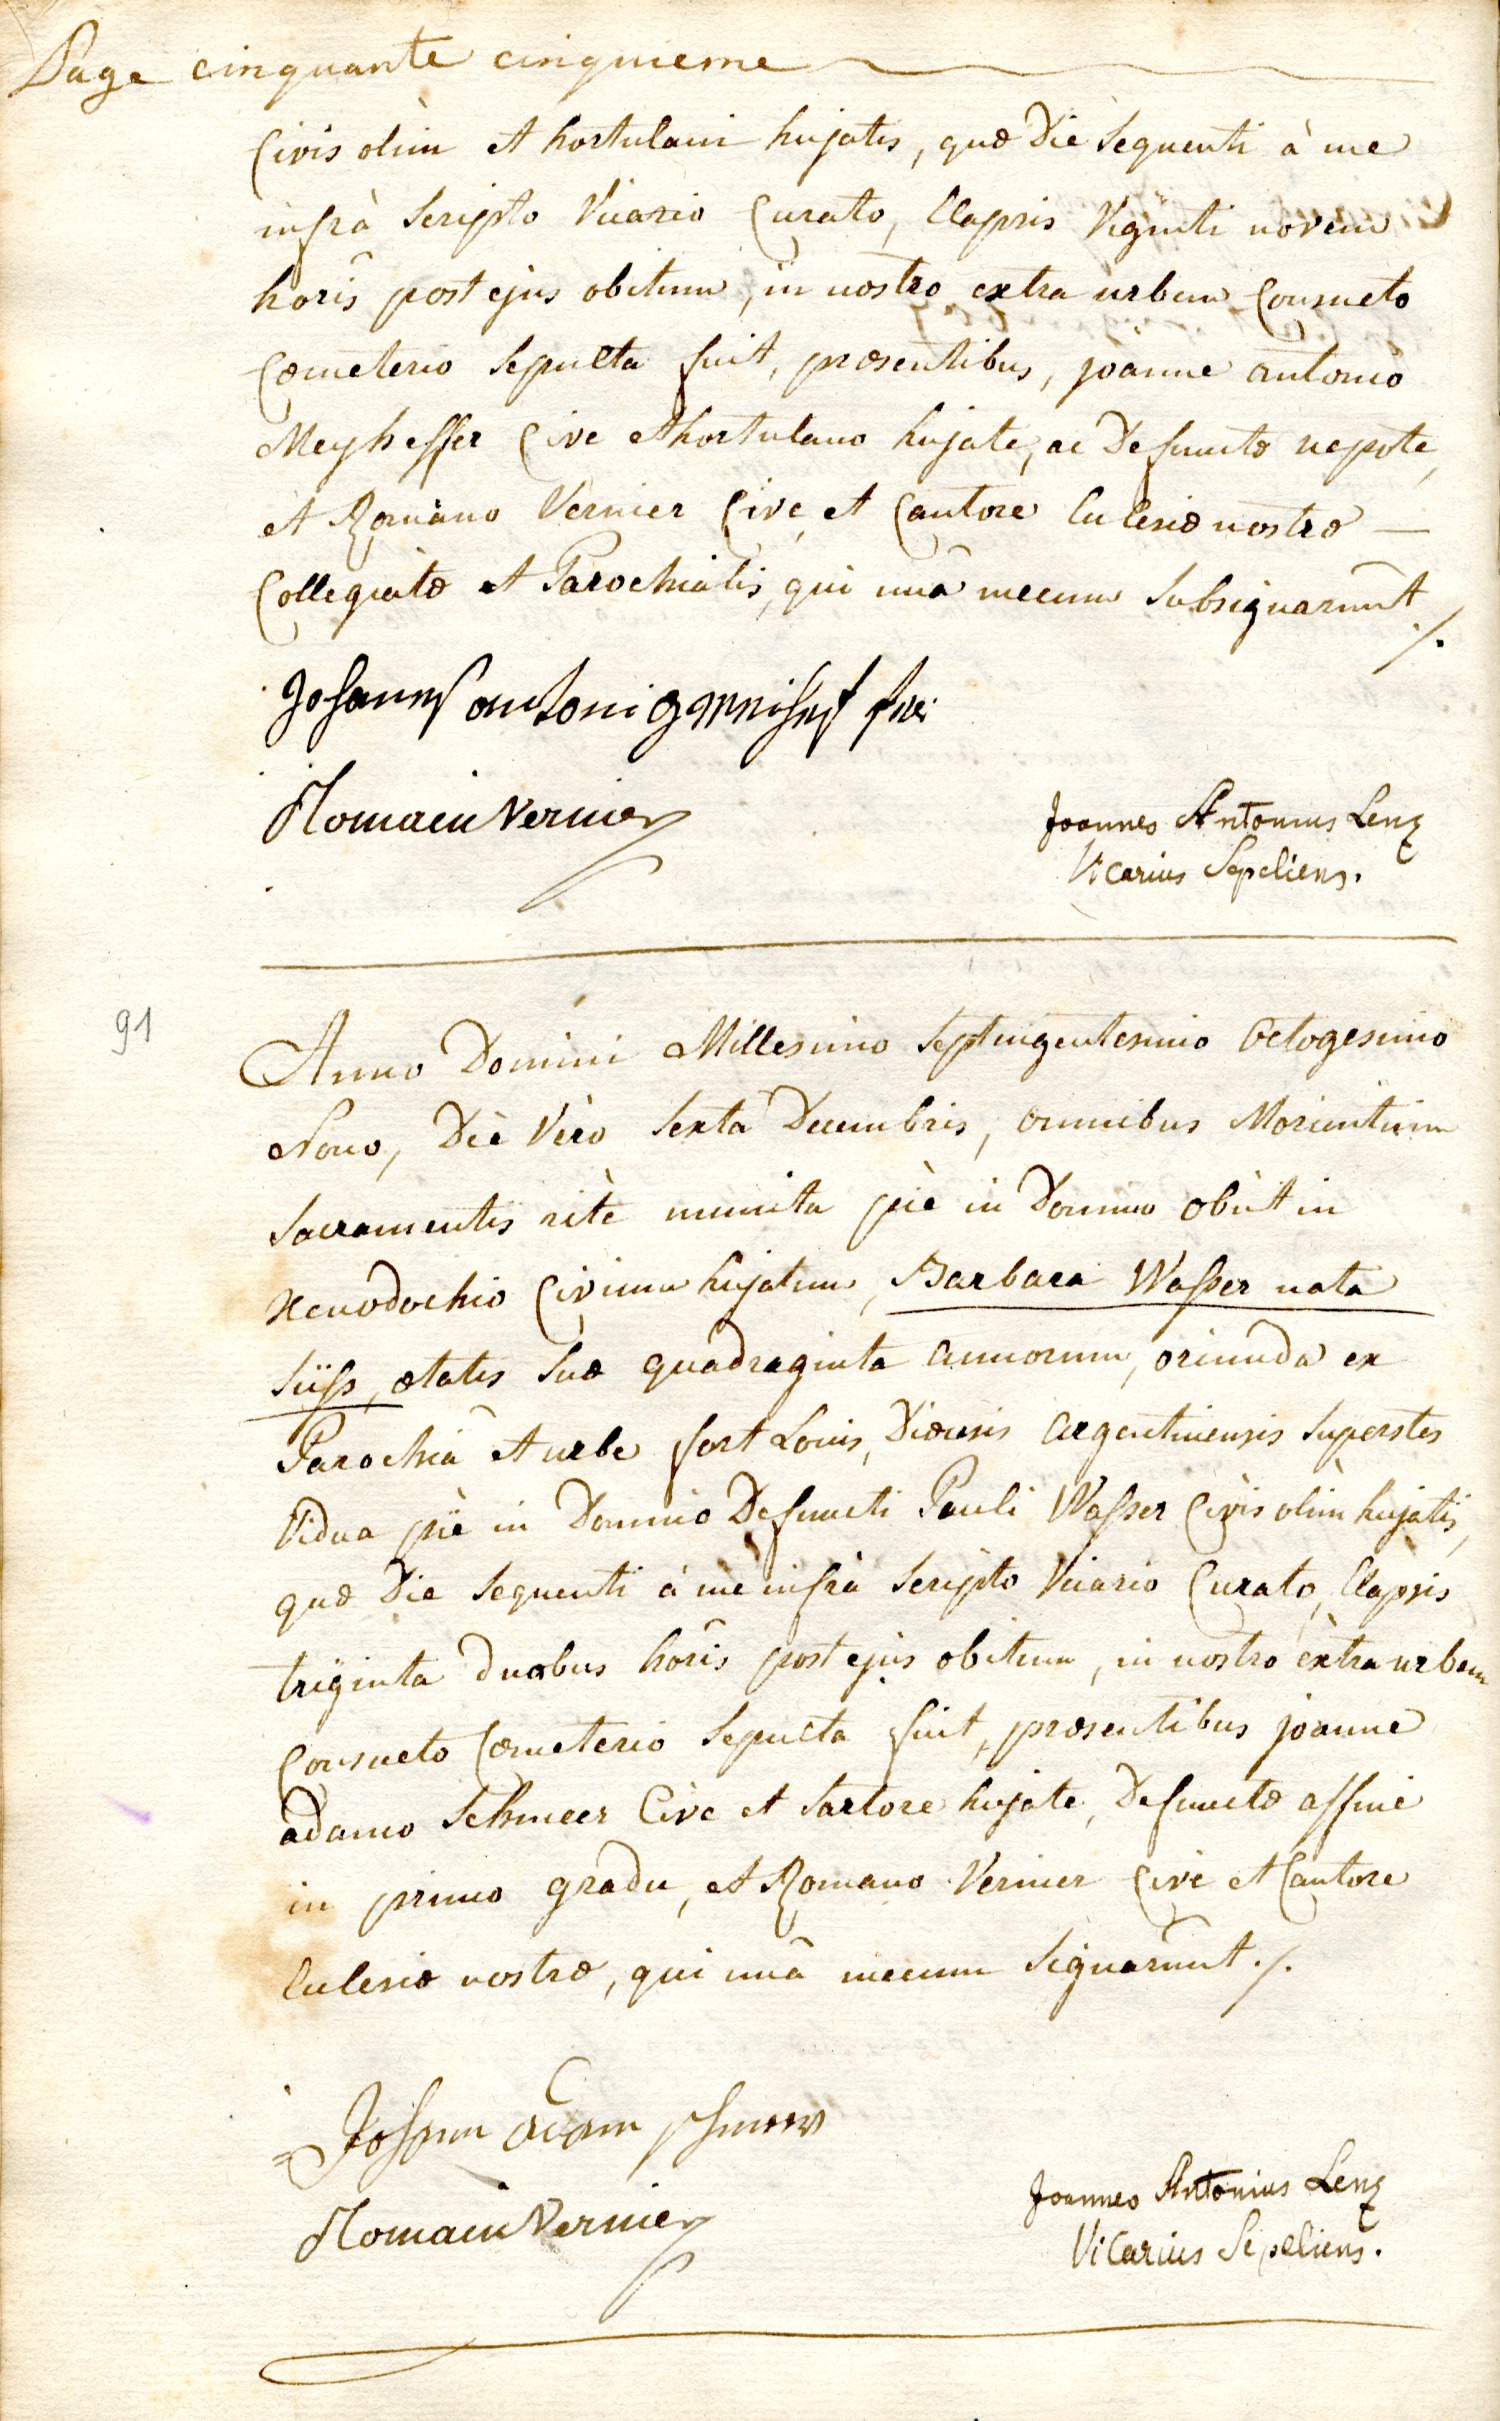 Page cinquante cinquieme
Civis olim et hortulani hujatis, quæ Die Sequenti à me
infrà Scripto Vicario Curato, Elapsis Viginti novem
horis post ejus obitum, in nostro extra urbem Consueto
Cœmeterio Sepulta fuit, præsentibus, joanne antonio
Meyheffer Cive et hortulano hujate, ac Defunctæ nepote,
et Romano Vernier Cive et Cantore Ecclesiæ nostræ —
Collegiatæ et Parochialis, qui unâ mecum Subsignarunt ./.
Johannes antoni
Romain Vernier
Joannes Antonius Lenz
Vicarius Sepeliens.
91
Anno Domini Millesimo Septingentesimo Octogesimo
Nono, Die Vero Sexta Decembris, omnibus Morientium
Sacramentis ritè munita piè in Domino obiit in
Xenodochio Civium hujatum, Barbara Wasser nata
Süss, ætatis Suæ quadraginta annorum, oriunda ex
Parochiâ et urbe fort Louis, Diœcesis argentinensis Superstes
Vidua piè in Domino Defuncti Pauli Wasser Civis olim hujatis,
quæ Die Sequenti à me infrà Scripto Vicario Curato, Elapsis
triginta duabus horis post ejus obitum, in nostro extra urbem
Consueto Cœmeterio Sepulta fuit, præsentibus joanne
adamo Schmeer Cive et Sartore hujate, Defunctæ affine
in primo gradu, et Romano Vernier Cive et Cantore
Ecclesiæ nostræ, qui unâ mecum Signarunt ./.
Johann adam schmeer
Romain Vernier
Joannes Antonius Lenz
Vicarius Sepeliens.